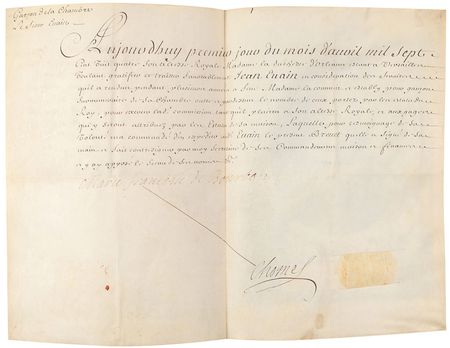 Garcon de la Chambre
Le Sieur Evain
Aujourdhuy premier jour du mois d'avril mil Sept
Cens quatre Son altesse Royale Madame la duchesse d'Orleans estant a Versailles
voulant gratifier et traiter favorablement Jean Evain en consideration des services
qu'il a rendus pendant plusieurs années a Madame la commis et etably pour garçon
Surnumeraire de Sa Chambre outre et pardessus le nombre de ceux portez par les etats du
Roy, pour exercer lad. commission tant quil plaira a Son altesse Royale, et aux gages
qui y seront attribuez par les Estats de Sa maison, Laquelle pour tesmoignage de Sa
volonté m'a commandé d'en expedier aud. Evain le present Brevet quelle a Signé de Sa
main et fait contresigner par moy Secretaire de Ses Commandemens maison et finances
et y ay apposé le
Marie françoise de Bourbon